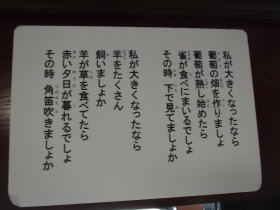 私が大きくなったなら
葡萄の畑を作りましょ
葡萄が熟し始めたら
雀が食べにまいるでしょ
その時 下で見てましょか
私が大きくなったなら
羊をたくさん
飼いましょか
羊が草を食べてたら
赤い夕日が暮れるでしょ
その時 角笛吹きましょか